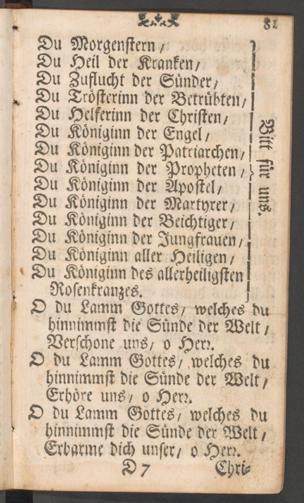 81
Du Morgenstern /
Du Heil der Kranken /
Du Zuflucht der Sünder /
Du Trösterinn der Betrübten /
Du Helferinn der Christen /
Du Königinn der Engel /
Du Königinn der Patriarchen /
Du Königinn der Propheten /
Du Königinn der Apostel /
Du Königinn der Martyrer /
Du Königinn der Beichtiger /
Du Königinn der Jungfrauen /
Du Königinn aller Heiligen /
Du Königinn des allerheiligsten
Rosenkranzes.
Bitt für uns.
O du Lamm Gottes / welches du
hinnimmst die Sünde der Welt /
Verschone uns / o Herr.
O du Lamm Gottes / welches du
hinnimmst die Sünde der Welt /
Erhöre uns / o Herr.
O du Lamm Gottes / welches du
hinnimmst die Sünde der Welt /
Erbarme dich unser / o Herr.
D 7 Chri-